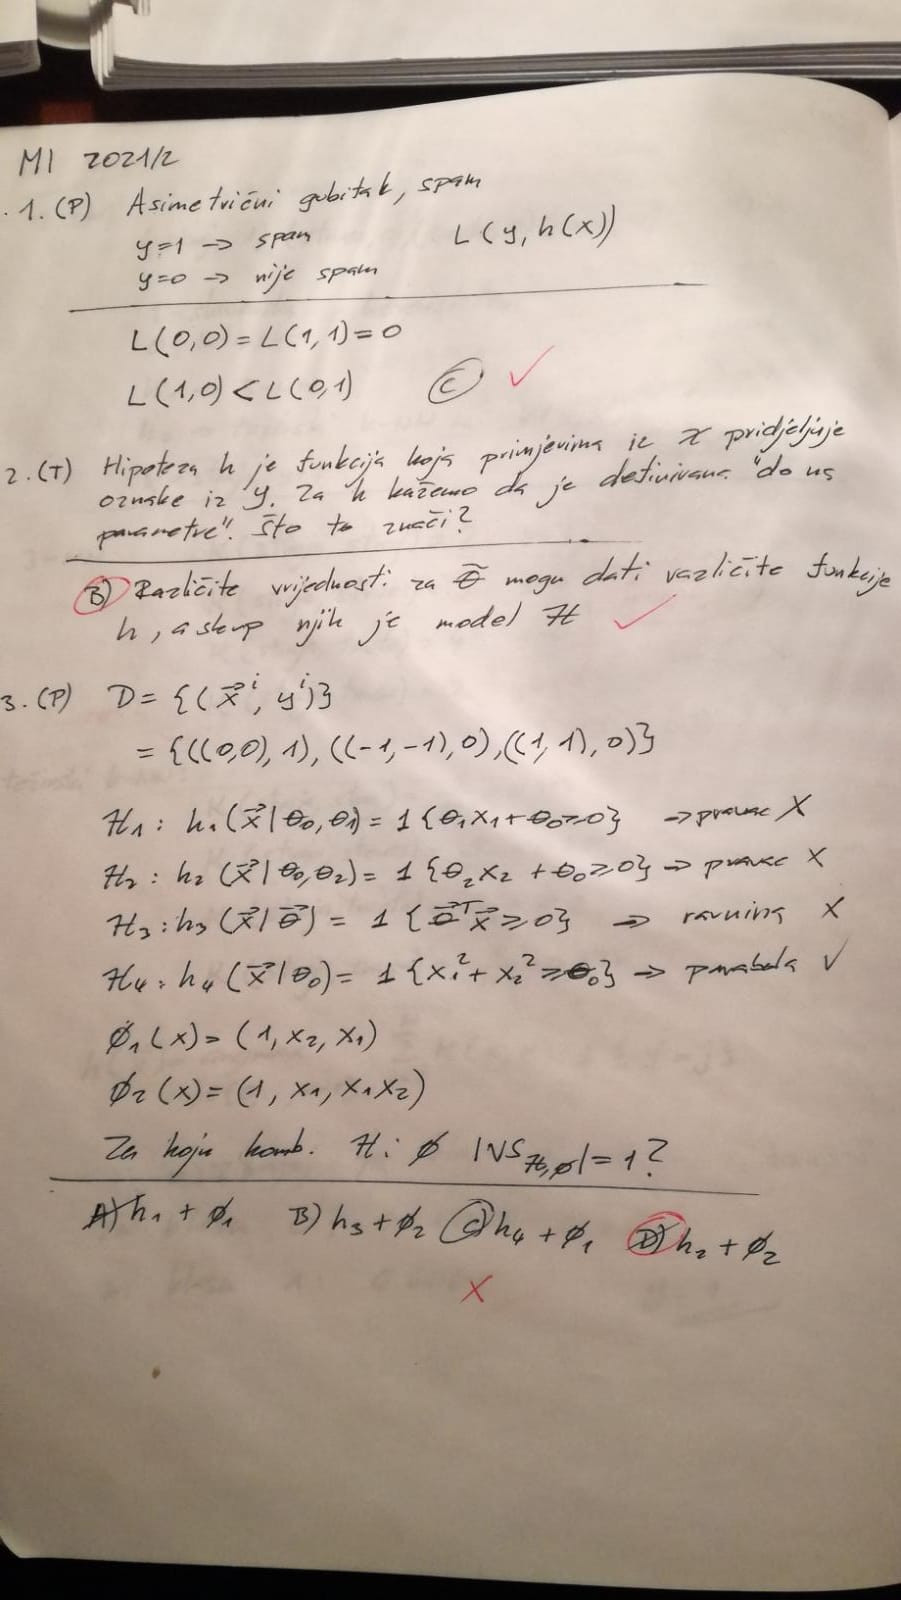 MI 2021/2
1. (P) Asimetrični gubitak, spam
y=1 -> spam L(y, h(x))
y=0 -> nije spam
L(0,0) = L(1,1) = 0
L(1,0) < L(0,1) C ✓
2. (T) Hipoteza h je funkcija koja primjerima iz X pridjeljuje
oznake iz Y. Za h kažemo da je definirana "do na
parametre". Što to znači?
B) Različite vrijednosti za θ⃗ mogu dati različite funkcije
h, a skup njih je model H ✓
3. (P) D = {(x⃗ⁱ, yⁱ)}
= {((0,0), 1), ((-1,-1), 0), ((1,1), 0)}
H₁ : h₁(x⃗|θ₀,θ₁) = 1{θ₁x₁+θ₀≥0} -> pravac X
H₂ : h₂(x⃗|θ₀,θ₂) = 1{θ₂x₂+θ₀≥0} -> pravac X
H₃ : h₃(x⃗|θ⃗) = 1{θ⃗ᵀx⃗≥0} -> ravnina X
H₄ : h₄(x⃗|θ₀) = 1{x₁²+x₂²≥θ₀} -> parabola ✓
ϕ₁(x) = (1, x₂, x₁)
ϕ₂(x) = (1, x₁, x₁x₂)
Za koju komb. H i ϕ |VS_H,ϕ| = 1?
A) h₁ + ϕ₁ B) h₃ + ϕ₂ C) h₄ + ϕ₁ D) h₂ + ϕ₂
X